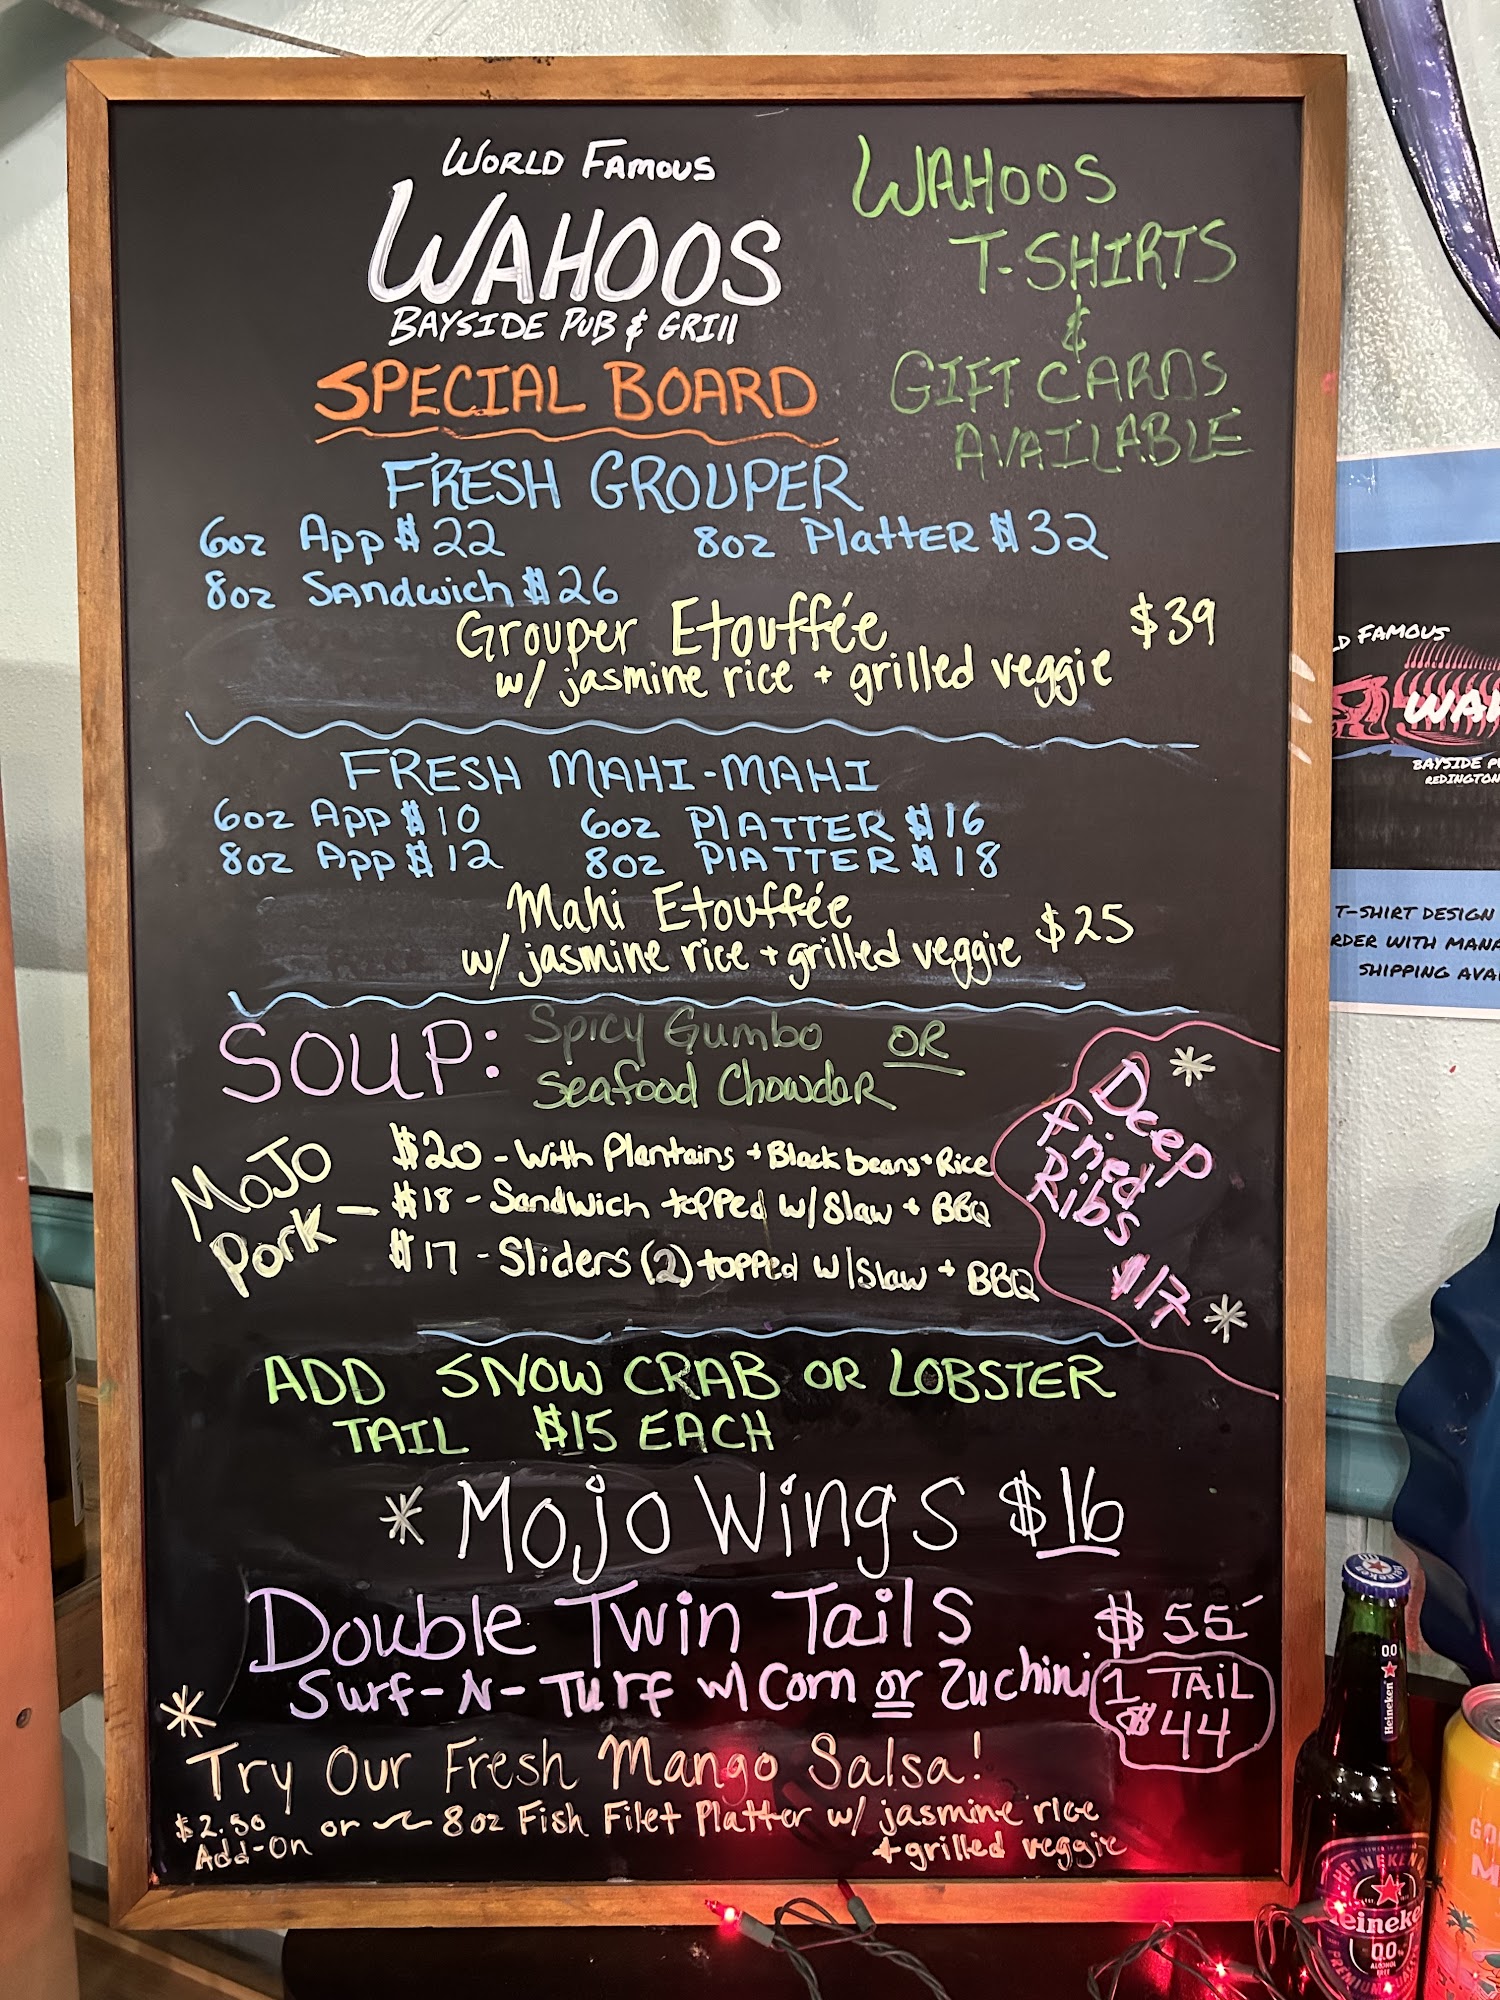 World Famous
WAHOOS
BAYSIDE PUB & GRILL
SPECIAL BOARD
WAHOOS
T-SHIRTS
&
GIFT CARDS
AVAILABLE
FRESH GROUPER
6oz App $22
8oz Platter $32
8oz Sandwich $26
Grouper Etouffée $39
w/ jasmine rice + grilled veggie
FRESH MAHI-MAHI
6oz App $10
6oz Platter $16
8oz App $12
8oz Platter $18
Mahi Etouffée
w/ jasmine rice + grilled veggie $25
SOUP: Spicy Gumbo OR
Seafood Chowder
Mojo Pork -
$20 - With Plantains + Black beans + Rice
$18 - Sandwich topped w/ Slaw + BBQ
$17 - Sliders (2) topped w/ Slaw + BBQ
* Deep
Fried
Ribs
$17 *
ADD SNOW CRAB OR LOBSTER
TAIL $15 EACH
* Mojo Wings $16
Double Twin Tails $55
Surf-N-Turf w/ Corn or Zuchini
1 TAIL
$44
* Try Our Fresh Mango Salsa!
$2.50
Add-On
or 8oz Fish Filet Platter w/ jasmine rice
+ grilled veggie
D FAMOUS
WAH
BAYSIDE P
REDINGTON
T-SHIRT DESIGN
RDER WITH MANA
SHIPPING AVA
Heineken
0.0
Heineken
HEINEKEN
eineke
0.0
ALCOHOL
FREE